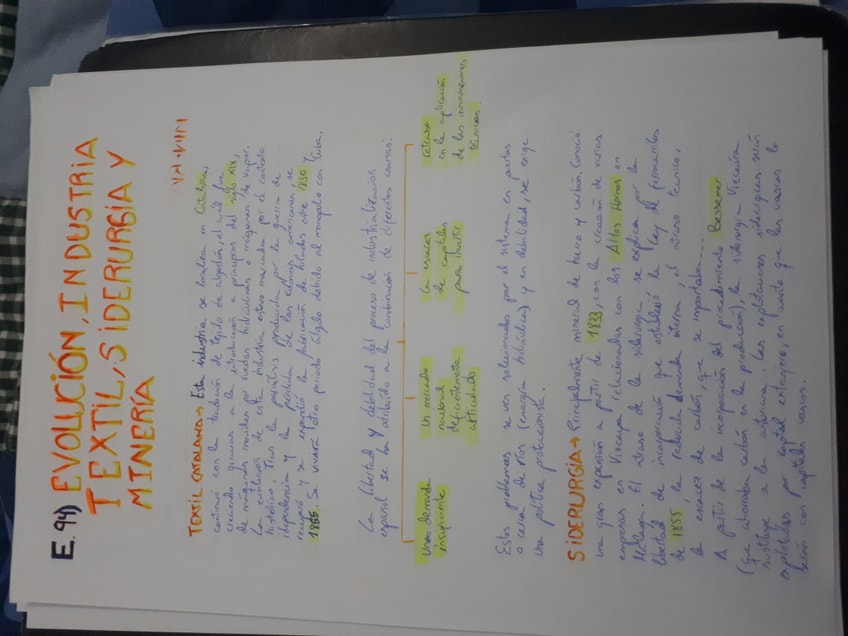 E. 94) EVOLUCIÓN, INDUSTRIA
TEXTIL, SIDERURGIA Y
MINERÍA
TEXTIL CATALANA → Esta industria se localiza en Cataluña,
continuó con la tradición de tejido de algodón, el cual fue
creciendo gracias a la introducción a principios del siglo XIX,
de máquinas movidas por ruedas hidráulicas o máquinas de vapor.
La evolución de esta industria estuvo marcada por el contexto
histórico. Tras la parálisis producida por la guerra de
independencia y la pérdida de las colonias americanas, se
recuperó y se expandió la fabricación de hilados entre 1830 y
1855. Se vivirá otro periodo álgido debido al monopolio con Cuba.
La libertad y debilidad del proceso de industrialización
español se ha atribuido a la combinación de diferentes causas:
Una demanda
insuficiente
Un mercado
nacional
deficientemente
articulado
La escasez
de capitales
para invertir
retraso
en la aplicación
de las innovaciones
técnicas.
Estos problemas se ven solucionados por el sistema en puertos
o cerca de ríos (energía hidráulica) y en debilidad, se exige
una política proteccionista.
SIDERURGIA → Principalmente mineral de hierro y carbón. Conoció
una gran expansión a partir de 1833, con la creación de varias
empresas en Vizcaya relacionadas con los Altos Hornos en
Málaga. El atraso de la siderurgia se explica por la
libertad de incorporación que estableció la Ley de ferrocarriles
de 1855 la reducida demanda interna, el atraso técnico,
la escasez de carbón, que se importaba...
A partir de la incorporación del procedimiento Bessemer
(que ahorraba carbón en la producción), la siderurgia Vizcaína
sustituye a la asturiana. Las explotaciones siderúrgicas serán
explotadas por capital extranjero, en cuanto que las vascas lo
serán con capitales vascos.